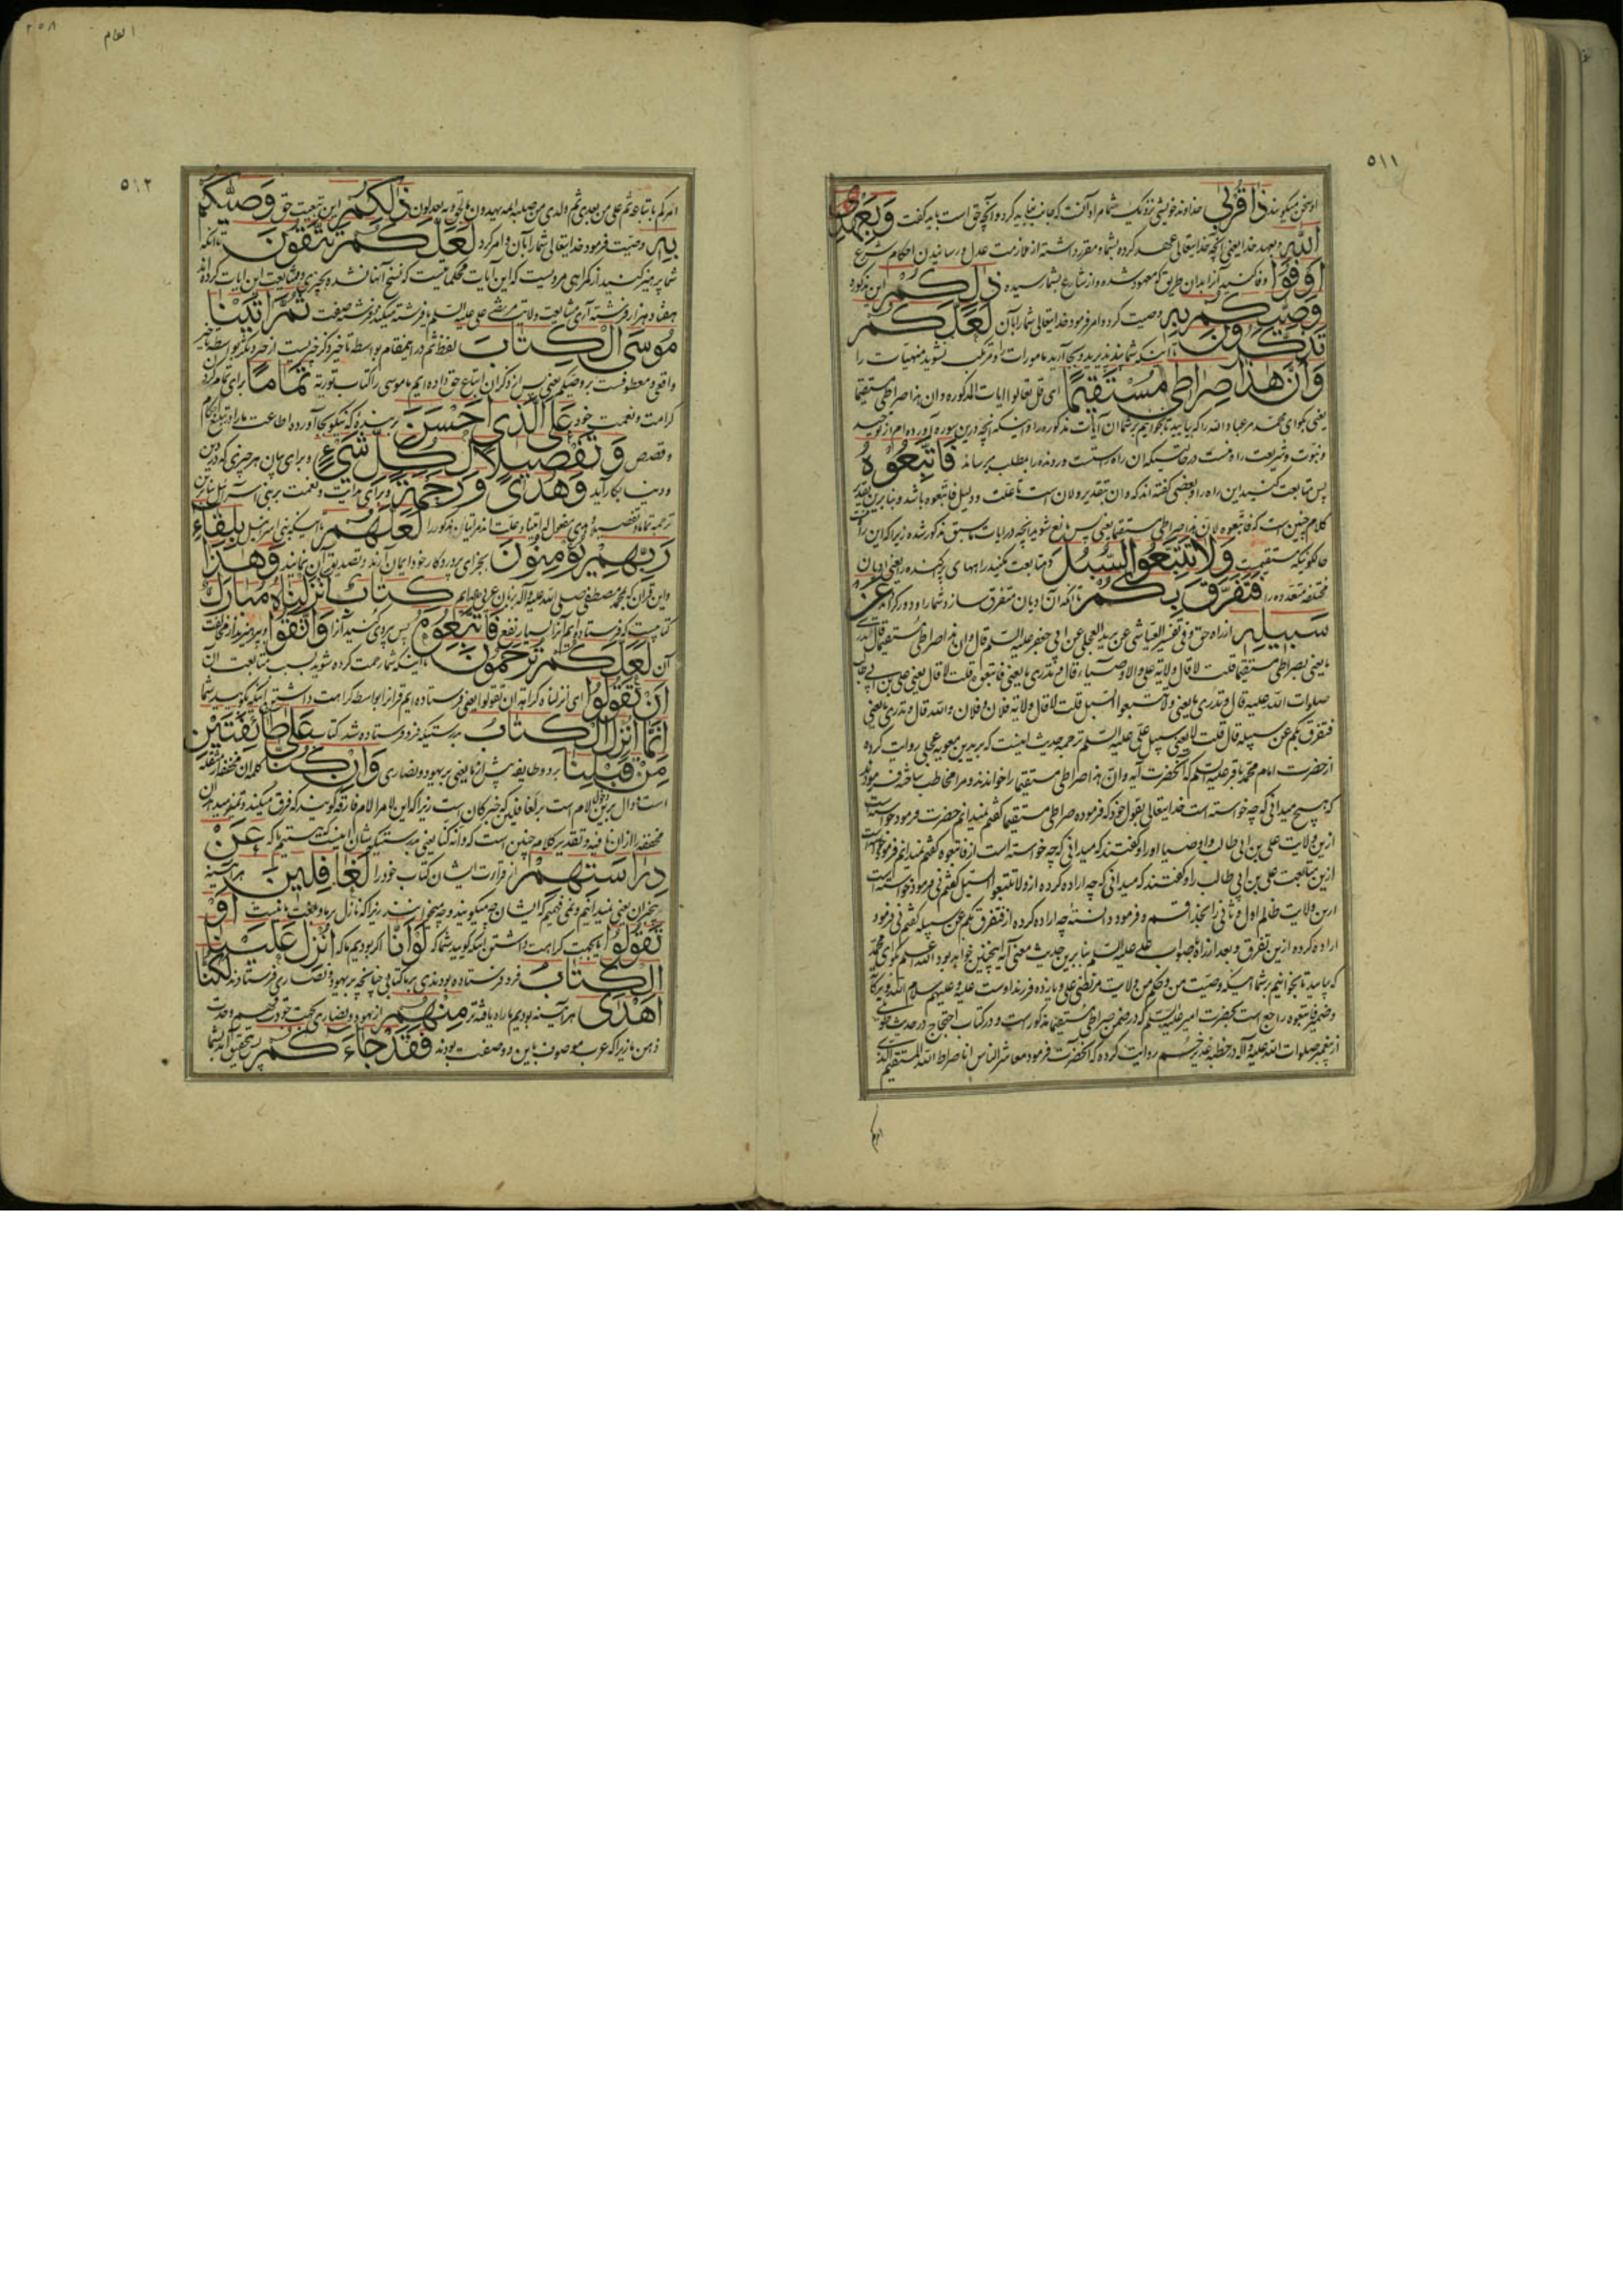 ٥١١
او سخن میگویند ذَا قُرْبىٰ خداوند خویشی نزدیک شما مراد آنست که جانب نباید کرد و آنچه حق است باید گفت وَبِعَهْدِ
اللّٰهِ و بعهد خدا یعنی آنچه خدایتعالی عهد کرده بشما و مقرر داشته از ملازمت عدل و رسانیدن احکام شرع
اَوْفُوا وفا کنید آنرا بدان طریق که معهود شده و از شارع بشما رسیده ذٰلِكُمْ این مذکور
وَصّٰيكُمْ بِهِ وصیت کرد و امر فرمود خدایتعالی شما را بآن لَعَلَّكُمْ
تَذَكَّرُونَ تا اینکه شما پند پذیرید و بجا آرید مامورات را و مرتکب نشوید منهیات را
وَاَنَّ هٰذَا صِرَاطِي مُسْتَقِيمًا ای قل تعالوا ایات المذکوره و ان هذا صراطی مستقیما
یعنی بگو ای محمد مر عباد الله را که بیایید تا بخوانیم بر شما آن آیات مذکوره را و اینکه آنچه درین سوره آورده ام از توحید
و نبوت و شریعت راه منست در حالتیکه آن راه راستست و رونده را بمطلب میرساند فَاتَّبِعُوهُ
پس متابعت کنید این راه را و بعضی گفته اند که و ان بتقدیر و لان است تا علت و دلیل فاتبعوه باشد و بنابرین تقدیر
کلام چنین است که فاتبعوه لان هذا صراطی مستقیما یعنی پس تابع شوید آنچه در ایات سابق مذکور شده زیرا که این راه
حالکونیکه مستقیمست وَلَا تَتَّبِعُوا السُّبُلَ و متابعت مکنید راههای پراکنده را یعنی ادیان
مختلفه متعدده را فَتَفَرَّقَ بِكُمْ تا آنکه آن ادیان متفرق سازد شما را و دور گرداند عَنْ
سَبِيلِهِ از راه حق و فی تفسیر العیاشی عن برید العجلی عن ابی جعفر علیه السلم قال و ان هذا صراطی مستقیما قال اتدری
ما یعنی بصراطی مستقیما قلت لا قال ولایة علی و الاوصیاء قال و تدری ما یعنی فاتبعوه قلت لا قال یعنی علی بن ابی طالب
صلوات الله علیه قال و تدری ما یعنی و لا تتبعوا السبل قلت لا قال ولایة فلان و فلان و الله قال و تدری ما یعنی
فتفرق بکم عن سبیله قال قلت لا یعنی سبیل علی علیه السلم ترجمه حدیث اینست که برید بن معویه عجلی روایت کرده
از حضرت امام محمد باقر علیه السلم که آنحضرت آیه و ان هذا صراطی مستقیما را خواندند و مرا مخاطب ساخته فرمودند
که هیچ میدانی که چه خواسته است خدایتعالی بقول خود که فرموده صراطی مستقیما گفتم نمیدانم حضرت فرمود خواسته است
ازین ولایت علی بن ابی طالب و اوصیا او را و گفتند که میدانی که چه خواسته است از فاتبعوه گفتم نمیدانم فرمود خواسته است
ازین متابعت علی بن ابی طالب را و گفتند که میدانی که چه اراده کرده از و لا تتبعوا السبل گفتم نی فرمود خواسته است
ازین ولایت ظالم اول و ثانی را بخدا قسم و فرمود دانستهٔ چه اراده کرده از فتفرق بکم عن سبیله گفتم نی فرمود
اراده کرده ازین تفرق و بعد از راه صواب علی علیه السلم بنابرین حدیث معنی آیه اینچنین خواهد بود و الله اعلم بگو ای محمد
که بیایید تا بخوانیم بر شما اینکه وصیت من و حکم من ولایت مرتضی علی و یازده فرزند اوست علیه و علیهم سلام الله و برکاته
و ضمیر فاتبعوه راجع است بحضرت امیر علیه السلم که در ضمن صراطی مستقیما مذکور است و در کتاب احتجاج در حدیث طویل
از پیغمبر صلوات الله علیه و آله در خطبه غدیر خم روایت کرده که آنحضرت فرمود معاشر الناس انا صراط الله المستقیم الذی
امرکم
٢٥٨
انعام
٥١٢
امرکم باتباعه ثم علی من بعدی ثم ولدی من صلبه ائمة یهدون بالحق و به یعدلون ذٰلِكُمْ این تبعیت حق وَصّٰيكُمْ
بِهِ وصیت فرمود خدایتعالی شما را بآن و امر کرد لَعَلَّكُمْ تَتَّقُونَ تا آنکه
شما پرهیز کنید از گمراهی مرویست که این آیات محکماتیست که نسخ آنها نشده بچیزی و متابعت این ایات کرده اند
هفتاد هزار فرشته آری متابعت ولایت مرتضی علی علیه السلم یا فرشته میکند یا فرشته صفت ثُمَّ اٰتَيْنَا
مُوسَى الْكِتَابَ لفظ ثم در اینمقام بواسطه تاخیر ذکر خبریست از خبر دیگر نه بواسطه تاخیر
واقعی و معطوفست بر وصیکم یعنی پس از ذکر آن اتباع حق داده ایم ما موسی را کتاب توریة تَمَامًا برای تمام کردن
کرامت و نعمت خود عَلَى الَّذِي اَحْسَنَ بر بندهٔ که نیکو بجا آورده اطاعت ما را و تبلیغ احکام
و قصص وَتَفْصِيلًا لِكُلِّ شَيْءٍ و برای بیان هر چیزی که در دین
و دنیا بکار آید وَهُدًى وَرَحْمَةً و برای هدایت و نعمت بر بنی اسرائیل بنابرین
ترجمه تماما و تفصیلا و هدی مفعول له اتینا و علت ما در اتیان مذکور را لَعَلَّهُمْ تا اینکه بنی اسرائیل بِلِقَاءِ
رَبِّهِمْ يُؤْمِنُونَ بجزای پروردگار خود ایمان آرند و تصدیق آن نمایند وَهٰذَا
و این قران که محمد مصطفی صلی الله علیه و اله بزبان عربی خوانده كِتَابٌ اَنْزَلْنَاهُ مُبَارَكٌ
کتابیست که فرستاده ایم آنرا بسیار نفع فَاتَّبِعُوهُ پس پیروی کنید آنرا وَاتَّقُوا و بپرهیزید از مخالفت
آن لَعَلَّكُمْ تُرْحَمُونَ تا اینکه شما رحمت کرده شوید بسبب متابعت آن
اَنْ تَقُولُوا ای انزلناه کراهة ان تقولوا یعنی فرستاده ایم قرانرا بواسطه کراهت داشتن اینکه بگویید شما
اِنَّمَا اُنْزِلَ الْكِتَابُ بدرستیکه فرو فرستاده شد کتاب عَلٰى طَائِفَتَيْنِ
مِنْ قَبْلِنَا بر دو طایفه پیش از ما یعنی بر یهود و نصاری وَاِنْ كُنَّا کلمه ان مخففه از مثقله
است و دال برین دخول لام است بر لغافلین که خبر کان است زیرا که این لام را لام فارقه گویند که فرق میکند و تمیز میدهد ان
مخففه را از ان نافیه و تقدیر کلام چنین است که و انه کنا یعنی بدرستیکه شان اینست که هستیم ما که عَنْ
دِرَاسَتِهِمْ از قرائت ایشان کتاب خود را لَغَافِلِينَ هر آینه
بیخبران یعنی نمیدانیم و نمی فهمیم که ایشان چه میگویند و چه میخوانند زیرا که نازل بر ما و بلغت ما نیست اَوْ
تَقُولُوا یا بجهت کراهت داشتن اینکه گویید شما که لَوْ اَنَّا اگر بودیم ما که اُنْزِلَ عَلَيْنَا
الْكِتَابُ فرو فرستاده بودندی بر ما کتابی چنانچه بر یهود و نصاری فرستادند لَكُنَّا
اَهْدٰى هر آینه بودیم ما راه یافته تر مِنْهُمْ از یهود و نصاری بجهت جودت فهم و حدت
ذهن ما زیرا که عرب موصوف باین دو صفت بودند فَقَدْ جَاءَكُمْ پس بتحقیق آمد بشما